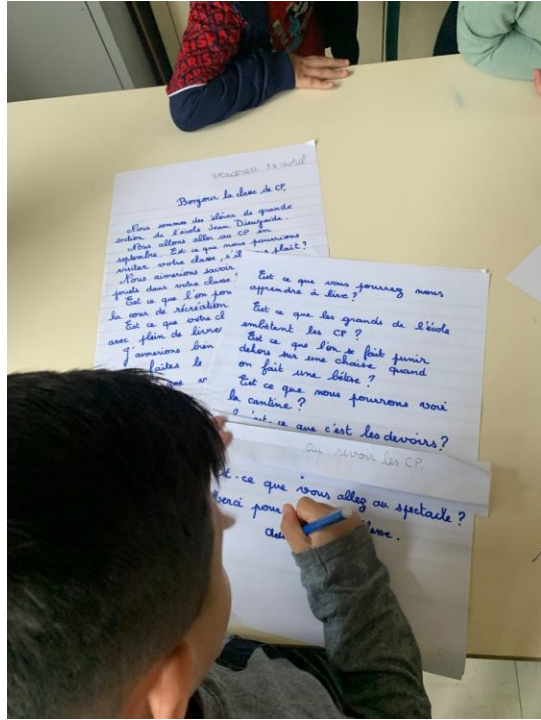 PARIS
vendredi 14 avril
Bonjour la classe de CP,
Nous sommes des élèves de grande
section de l'école Jean Dieuzaide.
Nous allons aller au CP en
septembre. Est ce que nous pourrions
visiter votre classe, s'il plaît?
Nous aimerions savoir
jouets dans votre classe
Est ce que l'on
la cour de récréation
Est ce que votre
avec plein de livres
J'aimerions bien
faites le
Est ce que vous pourrez nous
apprendre à lire?
Est ce que les grands de l'école
embêtent les CP?
Est ce que l'on se fait punir
dehors sur une chaise quand
on fait une bêtise?
Est ce que nous pourrons voir
la cantine?
ce que c'est les devoirs?
au revoir les CP.
ce que vous allez au spectacle?
Merci pour